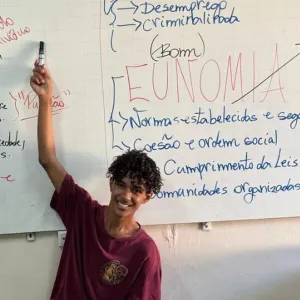 →Desemprego
→Criminalidade
(Bom)
EUNOMIA
→Normas estabelecidas e seg
→Coesão e ordem social
Cumprimento da Leis
omunidades organizadas